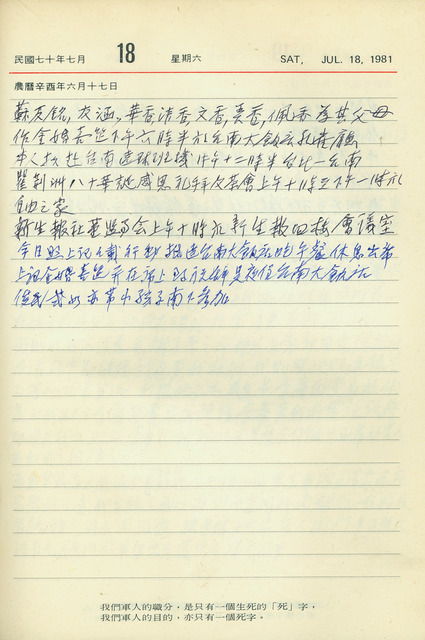 民國七十年七月 18 星期六 SAT, JUL. 18, 1981
農曆辛酉年六月十七日
蘇友銘,友涵,華香清香文香,美香,佩香為其父母
作金婚喜筵下午六時半於台南大飯店孔雀廳
午十二時半台北—台南
八十華誕感恩礼拜及茶會上午十時至下午一時於
自由之家
新生報社董監事會上午十時於新生報四楼會議室
今日照上記行動台南大飯店吃午餐休息出席
上記金婚喜筵并在席上致祝辭是夜宿台南大飯店
南下參加
我們軍人的職分,是只有一個生死的「死」字,
我們軍人的目的,亦只有一個死字。